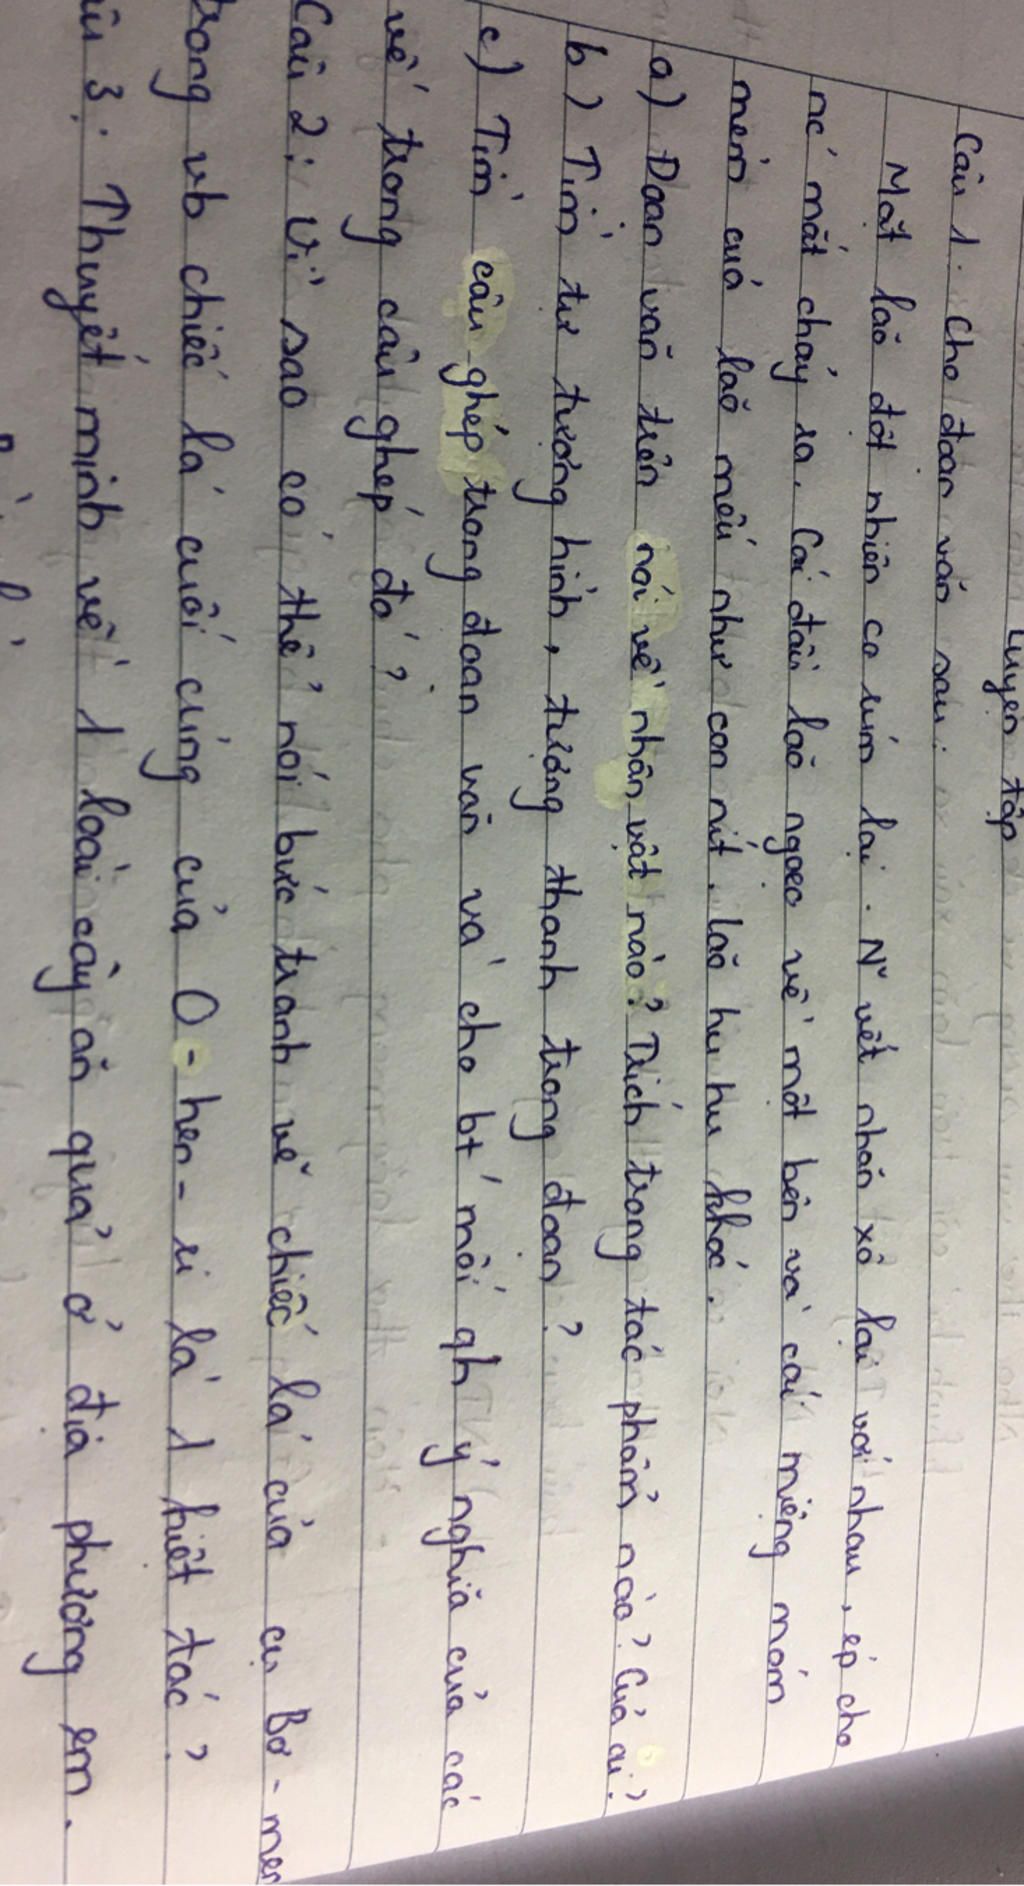 Luyện tập
Câu 1. Cho đoạn văn sau:
Mặt lão đột nhiên co rúm lại. N~ vết nhăn xô lại với nhau, ép cho
nc' mắt chảy ra. Cái đầu lão ngoẹo về một bên và cái miệng móm
mém của lão mếu như con nít. Lão hu hu khóc.
a) Đoạn văn trên nói về nhân vật nào? Trích trong tác phẩm nào? Của ai?
b) Tìm từ tượng hình, tượng thanh trong đoạn?
c) Tìm câu ghép trong đoạn văn và cho bt' mối qh ý nghĩa của các
vế trong câu ghép đó?
Câu 2: Vì sao có thể nói bức tranh vẽ chiếc lá của cụ Bơ-men
trong vb chiếc lá cuối cùng của O-hen-ri là 1 kiệt tác?
âu 3: Thuyết minh về 1 loài cây ăn quả ở địa phương em.